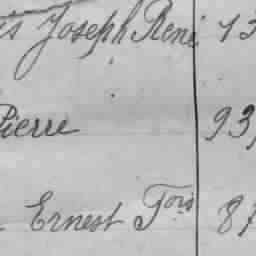 Joseph René 13
Pierre 93
Ernest Fois 87